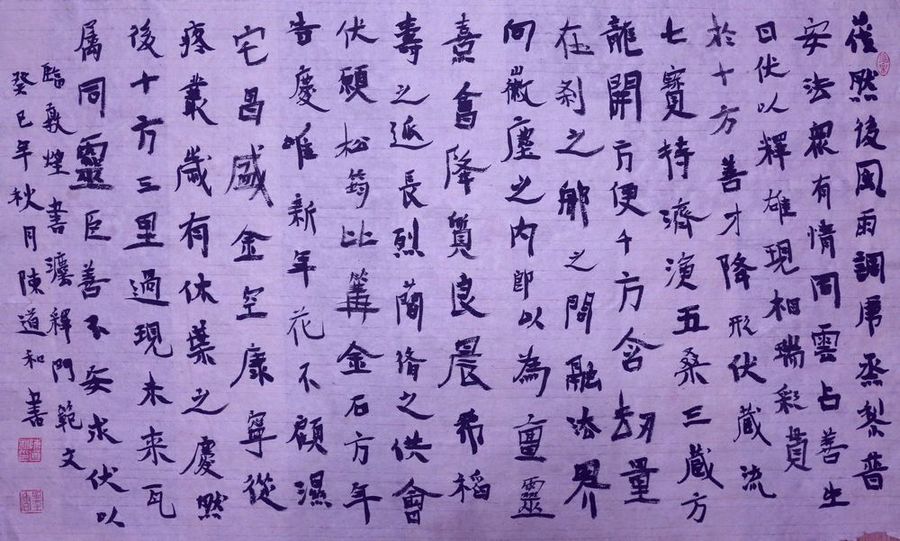 蓰然後風雨調序烝黎普
安法眾有情同雲占善生
日伏以釋雄現相瑞彩貫
於十方善才降形伏藏流
七寶持濟演五桑三藏方
龍開方便千方含劫量
在剎之鄉之間融法界
向徽塵之內即以為亶靈
熹會降質良晨希稻
壽之延長烈蘭脩之供會
伏願松筠比篝金石方年
告慶唯新年花不顧濕
宅昌盛金空康寧從
疼叢歲有休葉之慶然
後十方三里過現未來瓦
屬同靈臣善不妄求伏以
臨敦煌書瀍釋門範文
癸巳年秋月陳道和書